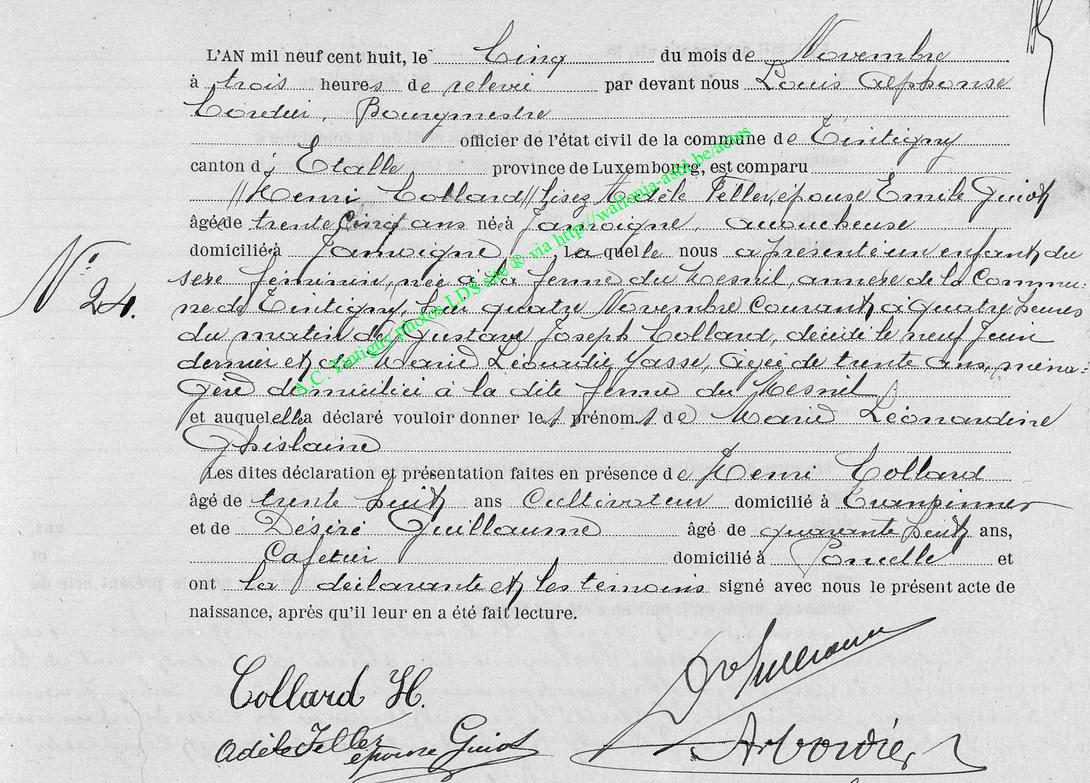 L'AN mil neuf cent huit, le Cinq du mois de Novembre
à trois heures de relevée par devant nous Louis Alphonse
Cordier, Bourgmestre
officier de l'état civil de la commune de Tintigny
canton d' Etalle province de Luxembourg, est comparu
//Henri Collard// lisez Adèle Feller épouse Emile Guiot
âgée de trente cinq ans née à Jamoigne, accoucheuse
domiciliée à Jamoigne, laquelle nous a présenté un enfant du
N° 24.
sexe féminin, née à la ferme du Mesnil, annexe de la Commu-
ne de Tintigny, le quatre Novembre Courant, à quatre heures
du matin de Gustave Joseph Collard, décédé le neuf Juin
dernier et de Marie Léonardie Yasse, âgée de trente ans, ména-
gère domiciliée à la dite ferme du Mesnil
et auquel elle a déclaré vouloir donner les prénoms de Marie Léonardine
Ghislaine
Les dites déclaration et présentation faites en présence de Henri Collard
âgé de trente huit ans Cultivateur domicilié à
et de Désiré Guillaume âgé de quarante huit ans,
Cafetier domicilié à Poncelle et
ont la déclarante et les témoins signé avec nous le présent acte de
naissance, après qu'il leur en a été fait lecture.
Collard H.
Adèle Feller
épouse Guiot
A.C. Tintigny photos LDS site ® via http://wallonia-asbl.be/actes